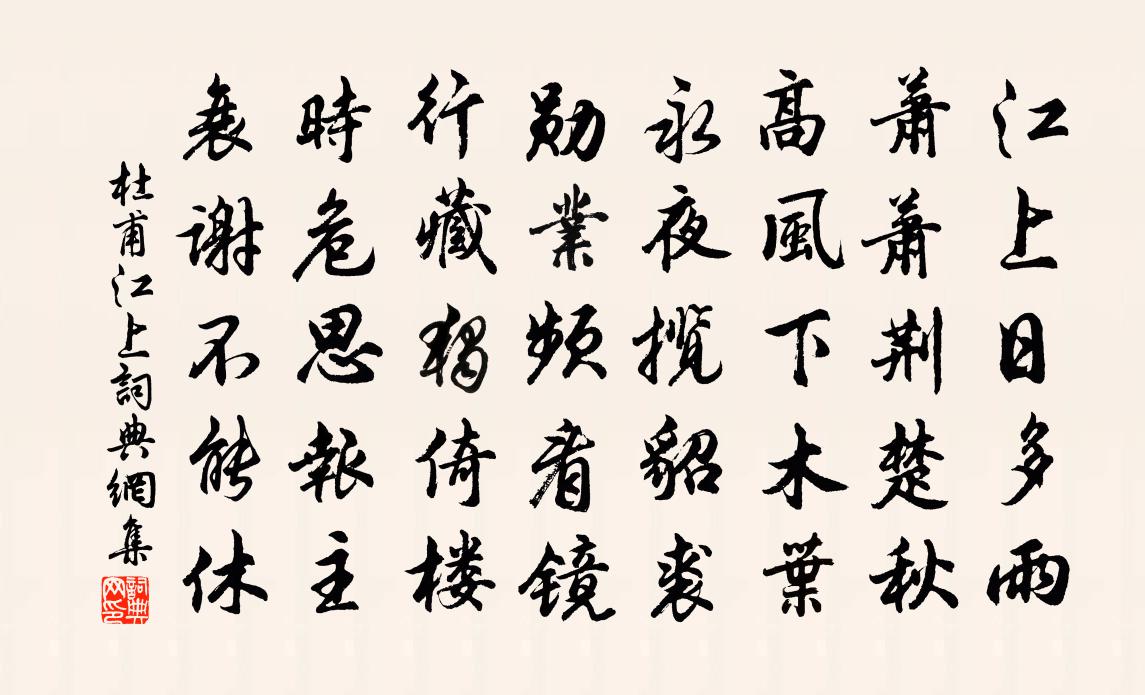 江上日多雨
蕭蕭荆楚秋
高風下木葉
永夜攬貂裘
勋業頻看鏡
行藏獨倚楼
時危思報主
衰謝不能休
杜甫江上詞典網集
詞典网印